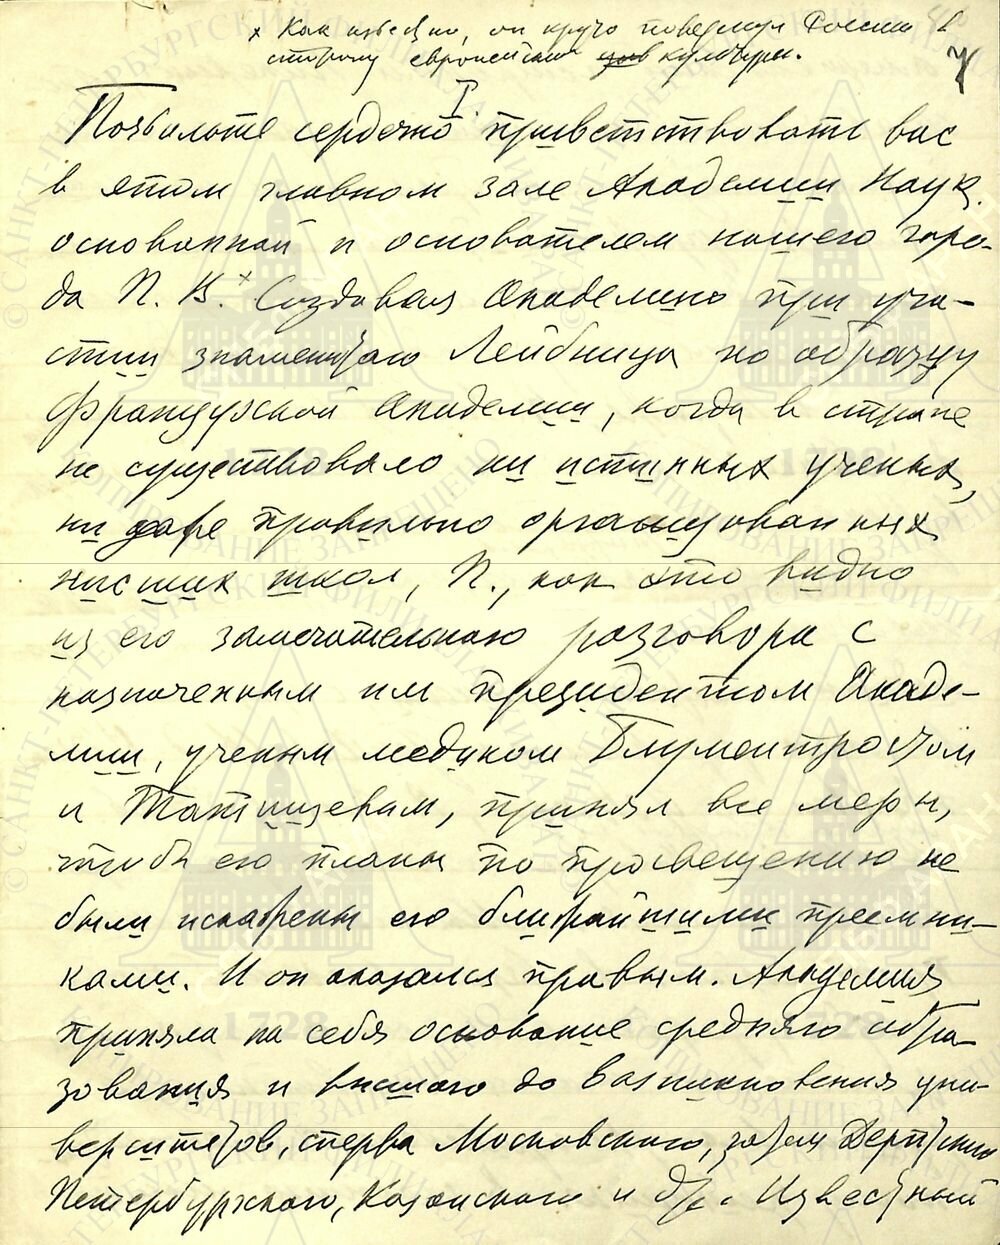 х Как известно, он круто повернул Россию в
сторону европейской культуры.
7
I.
Позвольте сердечно приветствовать вас
в этом главном зале Академии Наук,
основанной и основателем нашего горо-
да П. В.х Создавая Академию при уча-
стии знаменитого Лейбница по образцу
Французской Академии, когда в стране
не существовало ни истинных ученых,
ни даже правильно организованных
низших школ, П., как это видно
из его замечательного разговора с
назначенным им президентом Акаде-
мии, ученым медиком Блументростом
и Татищевым, принял все меры,
чтобы его планы по просвещению не
были искажены его ближайшими преемни-
ками. И он оказался правым. Академия
приняла на себя основание среднего обра-
зования и высшего до возникновения уни-
верситетов, сперва Московского, затем Дерптского
Петербургского, Казанского и др. Известный